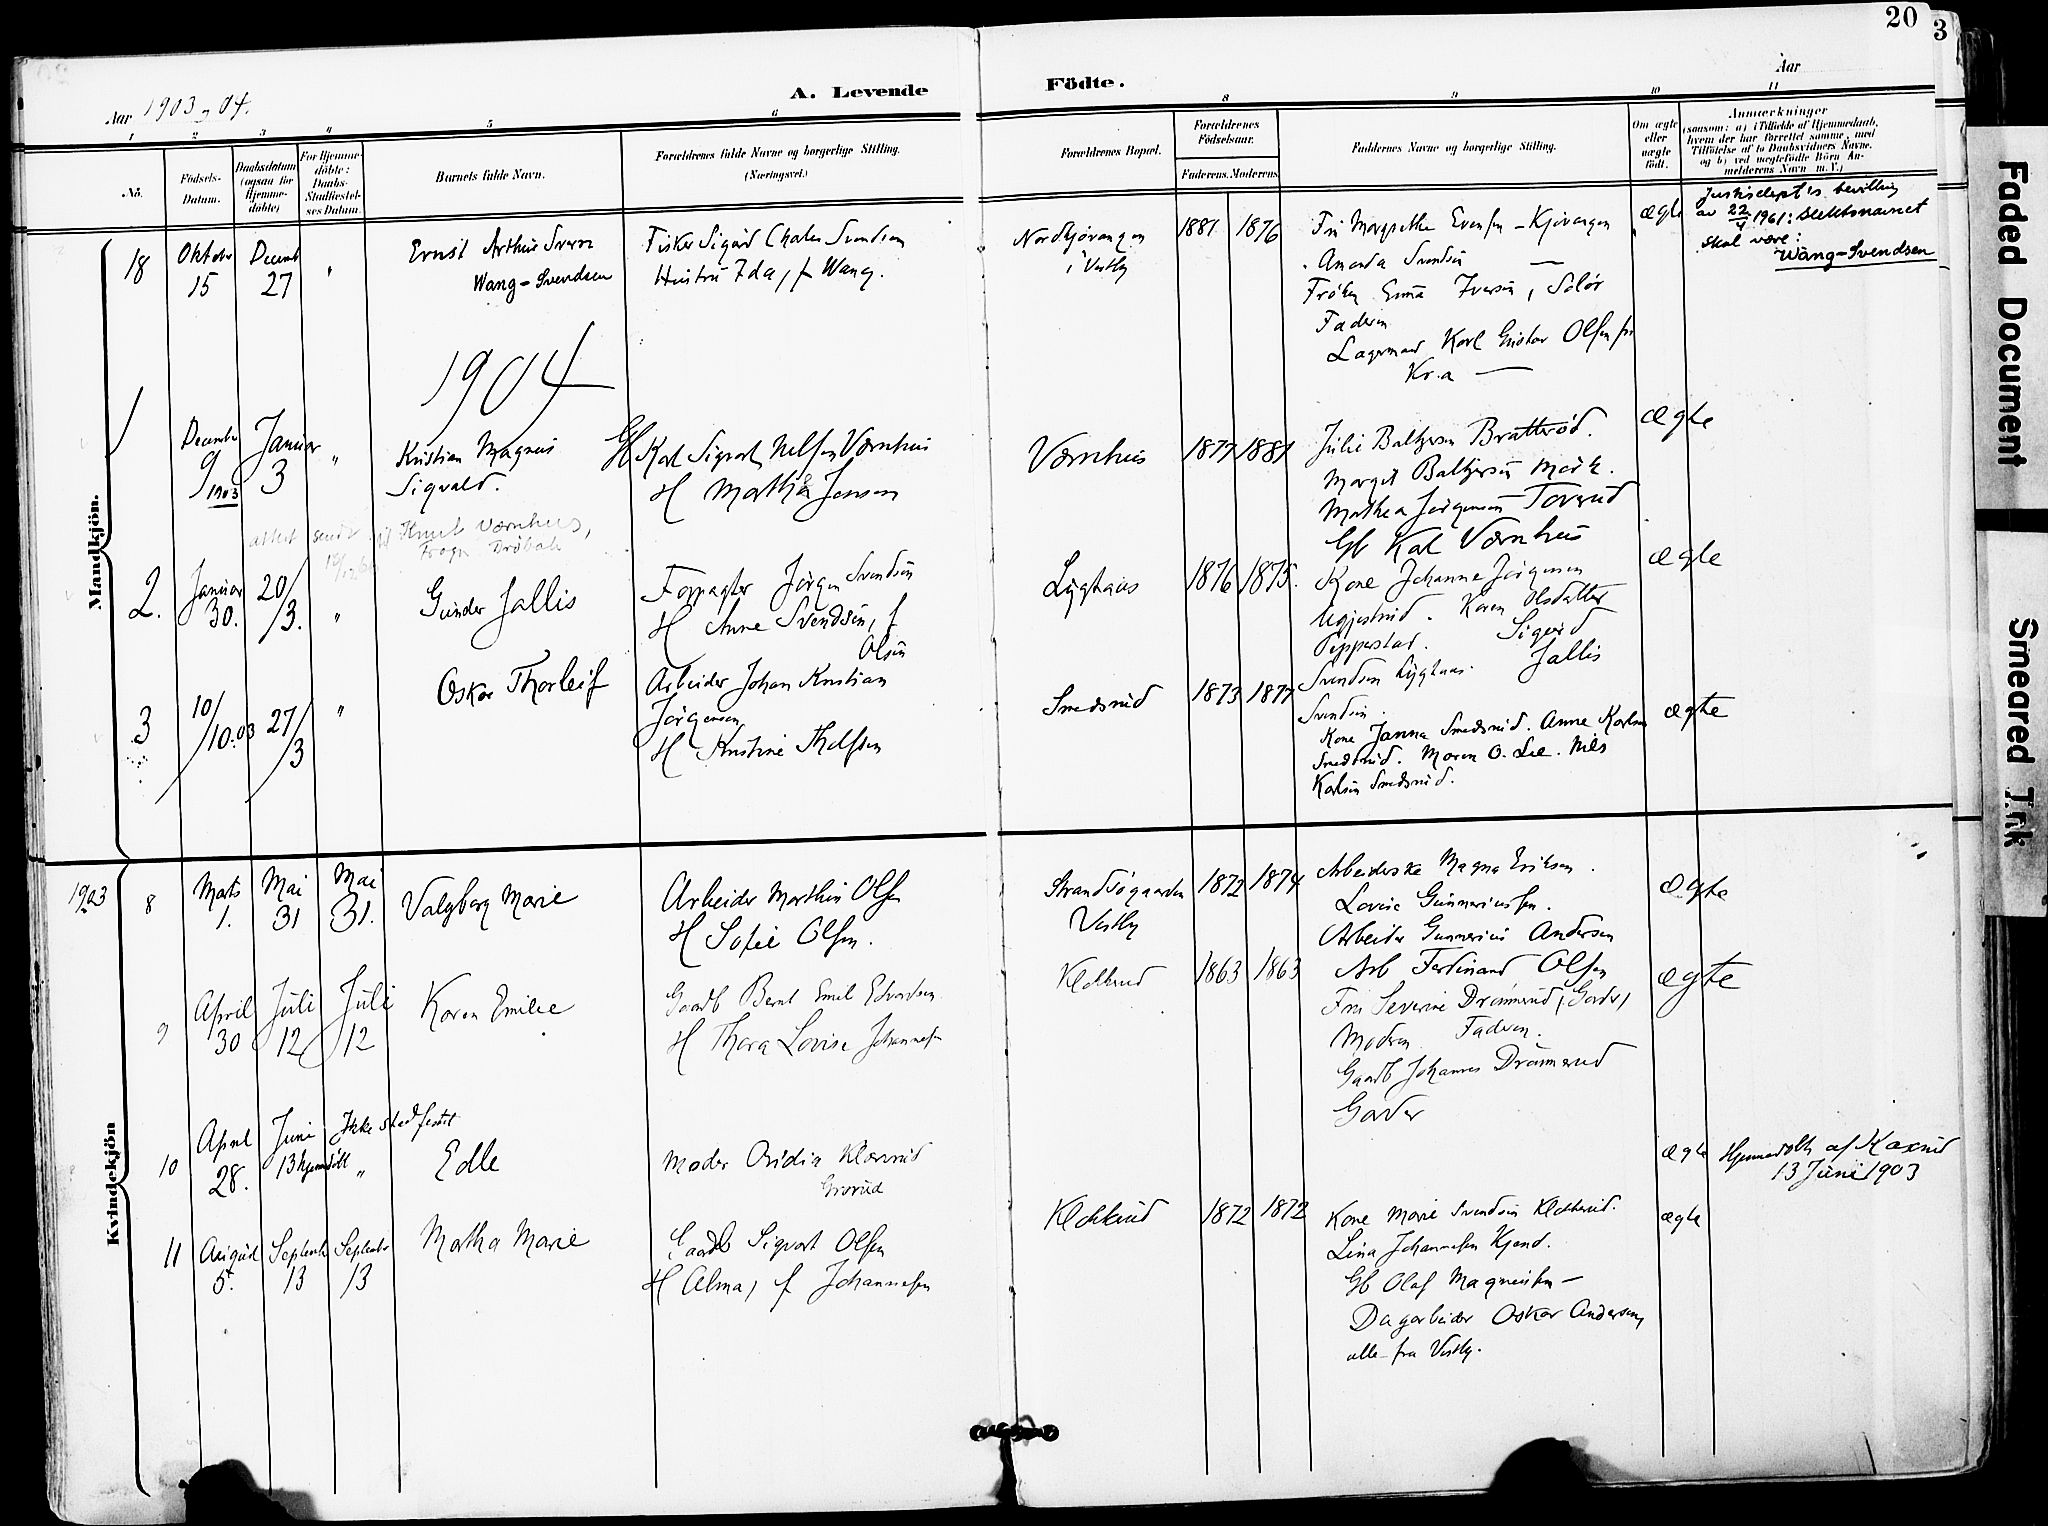 20
3
Aar 1903-04.
A. Levende
Födte.
Aar
1 2 3 4 5 6
8 9 10 11
No.
Födsels-
Datum.
Daabsdatum
(ogsaa for
Hjemme-
döbte)
For Hjemme-
döbte:
Daabs-
Stadfæstel-
ses Datum.
Barnets fulde Navn.
Forældrenes fulde Navne og borgerlige Stilling.
(Næringsvei.)
Forældrenes Bopæl.
Forældrenes
Födselsaar.
Faderens. Moderens.
Faddernes Navne og borgerlige Stilling.
Om ægte
eller
uægte
födt.
Anmærkninger
(saasom: a) i Tilfælde af Hjemmedaab,
hvem der har forrettet samme, med
Tilföielse af to Daabsvidners Navne.
og b) ved uægtefödte Börn An-
melderens Navn m. V.)
Mandkjön.
18
Oktober
15
Decemb
27
"
Ernst Arthur Sverre
Wang-Svendsen
Fisker Sigurd Charles Svendsen
Hustru Ida, f Wang.
Nordkjøvangen
i Vestby
1881 1876
Fru Margrethe Evensen - Kjøvangen
Amanda Svendsen —
Frøken Emma Iversen, Solør
Faderen
Lagermand Karl Gustav Olsen fra
Kr.a —
ægte
Justisdept's bevilling
av 22/4 1961: Slektsnavnet
skal være:
Wang-Svendsen
1904
1
Decembr
9
1903
Januar
3
"
Kristian Magnus
Sigvald.
Gb Karl Sigvart Nilsen Værnhus
H Marthea Jensen
Værnhus
1877 1881
Julie Baltzersen Bratterød.
Margit Baltzersen Mørk.
Mathea Jørgensen Torsrud
Gb Karl Værnhus
ægte
attest sendt til Knut Værnhus,
Frogn Drøbak
2.
Januar
30.
20/3.
"
Gunder Jallis
Forpagter Jørgen Svendsen
H Anne Svendsen, f
Olsen
Lygtaas
1876 1875.
Kone Johanne Jørgensen
Karen Olsdatter
Pepperstad. Sigurd
Svendsen Lygtaas. Jallis
Svendsen.
ægte
3
10/10.03
27/3
"
Oskar Thorleif
Arbeider Johan Kristian
Jørgensen
H Kristine Thelfsen
Smedsrud
1873 1877
Kone Janna Smedsrud. Anne Karlsen
Smedsrud. Maren O. Lee. Nils
Karlsen Smedsrud.
ægte
Kvindekjön
1903
8
Marts
1.
Mai
31
Mai
31.
Valgborg Marie
Arbeider Marthin Olsen
H Sofie Olsen.
Strandsøgaarden
Vestby
1872 1874
Arbeiderske Magna Eriksen.
Lovise Gunneriussen.
Arbeider Gunnerius Andersen
ægte
9
April
30
Juli
12
Juli
12
Karen Emilie
Gaardb Bernt Emil Edvardsen
H Thora Lovise Johannesen
Klokkerud
1863 1863
Arb Ferdinand Olsen
Fru Severine Drømmerud, Garder,
Moderen Faderen.
Gaardb Johannes Drømmerud
Garder
ægte
10
April
28.
Juni
13 hjemdöbt
Ikke stadfestet
"
Edle
Moder Ovidia Klokkerud
Grorud
ægte
Hjemmedøbt af Kaxrud
13 Juni 1903
11
August
5.
Septembr
13
Septembr
13
Martha Marie
Gaardb Sigvart Olsen
H Alma, f Johannesen
Klokkerud
1872 1872
Kone Marie Svendsen Klokkerud.
Lina Johannesen Kjend.
Gb Olaf Magnussen —
Dagarbeider Oskar Andersen,
alle fra Vestby.
ægte
Faded Document
Smeared Ink